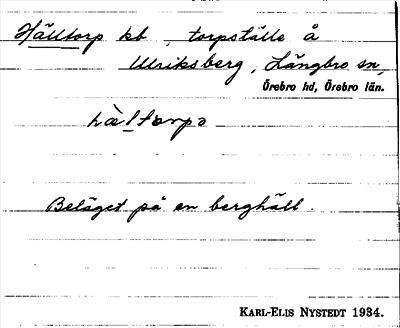 Hälltorp kt, torpställe å
Ulriksberg, Längbro sn,
Örebro hd, Örebro län.
hàltorpə
Beläget på en berghäll.
KARL-ELIS NYSTEDT 1934.